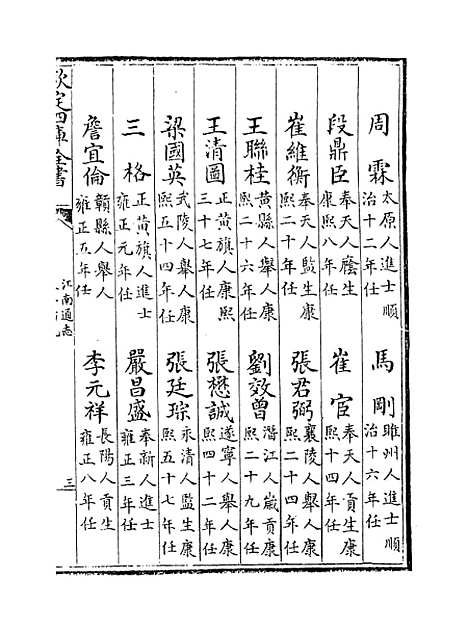 周霖 太原人進士順治十二年任
馬剛 睢州人進士順治十六年任
段鼎臣 奉天人廕生康熙八年任
崔官 奉天人貢生康熙十四年任
崔維衡 奉天人監生康熙二十年任
張君弼 襄陵人舉人康熙二十四年任
王聯桂 黃縣人舉人康熙二十六年任
劉效曾 潛江人歲貢康熙二十九年任
王清圖 正黃旗人康熙三十七年任
張懋誠 遂寧人舉人康熙四十二年任
梁國英 武陵人舉人康熙五十四年任
張廷琮 永清人監生康熙五十七年任
三格 正黃旗人進士雍正元年任
嚴昌盛 奉新人進士雍正三年任
詹宜倫 贛縣人舉人雍正五年任
李元祥 長陽人貢生雍正八年任
欽定四庫全書
江南通志
三